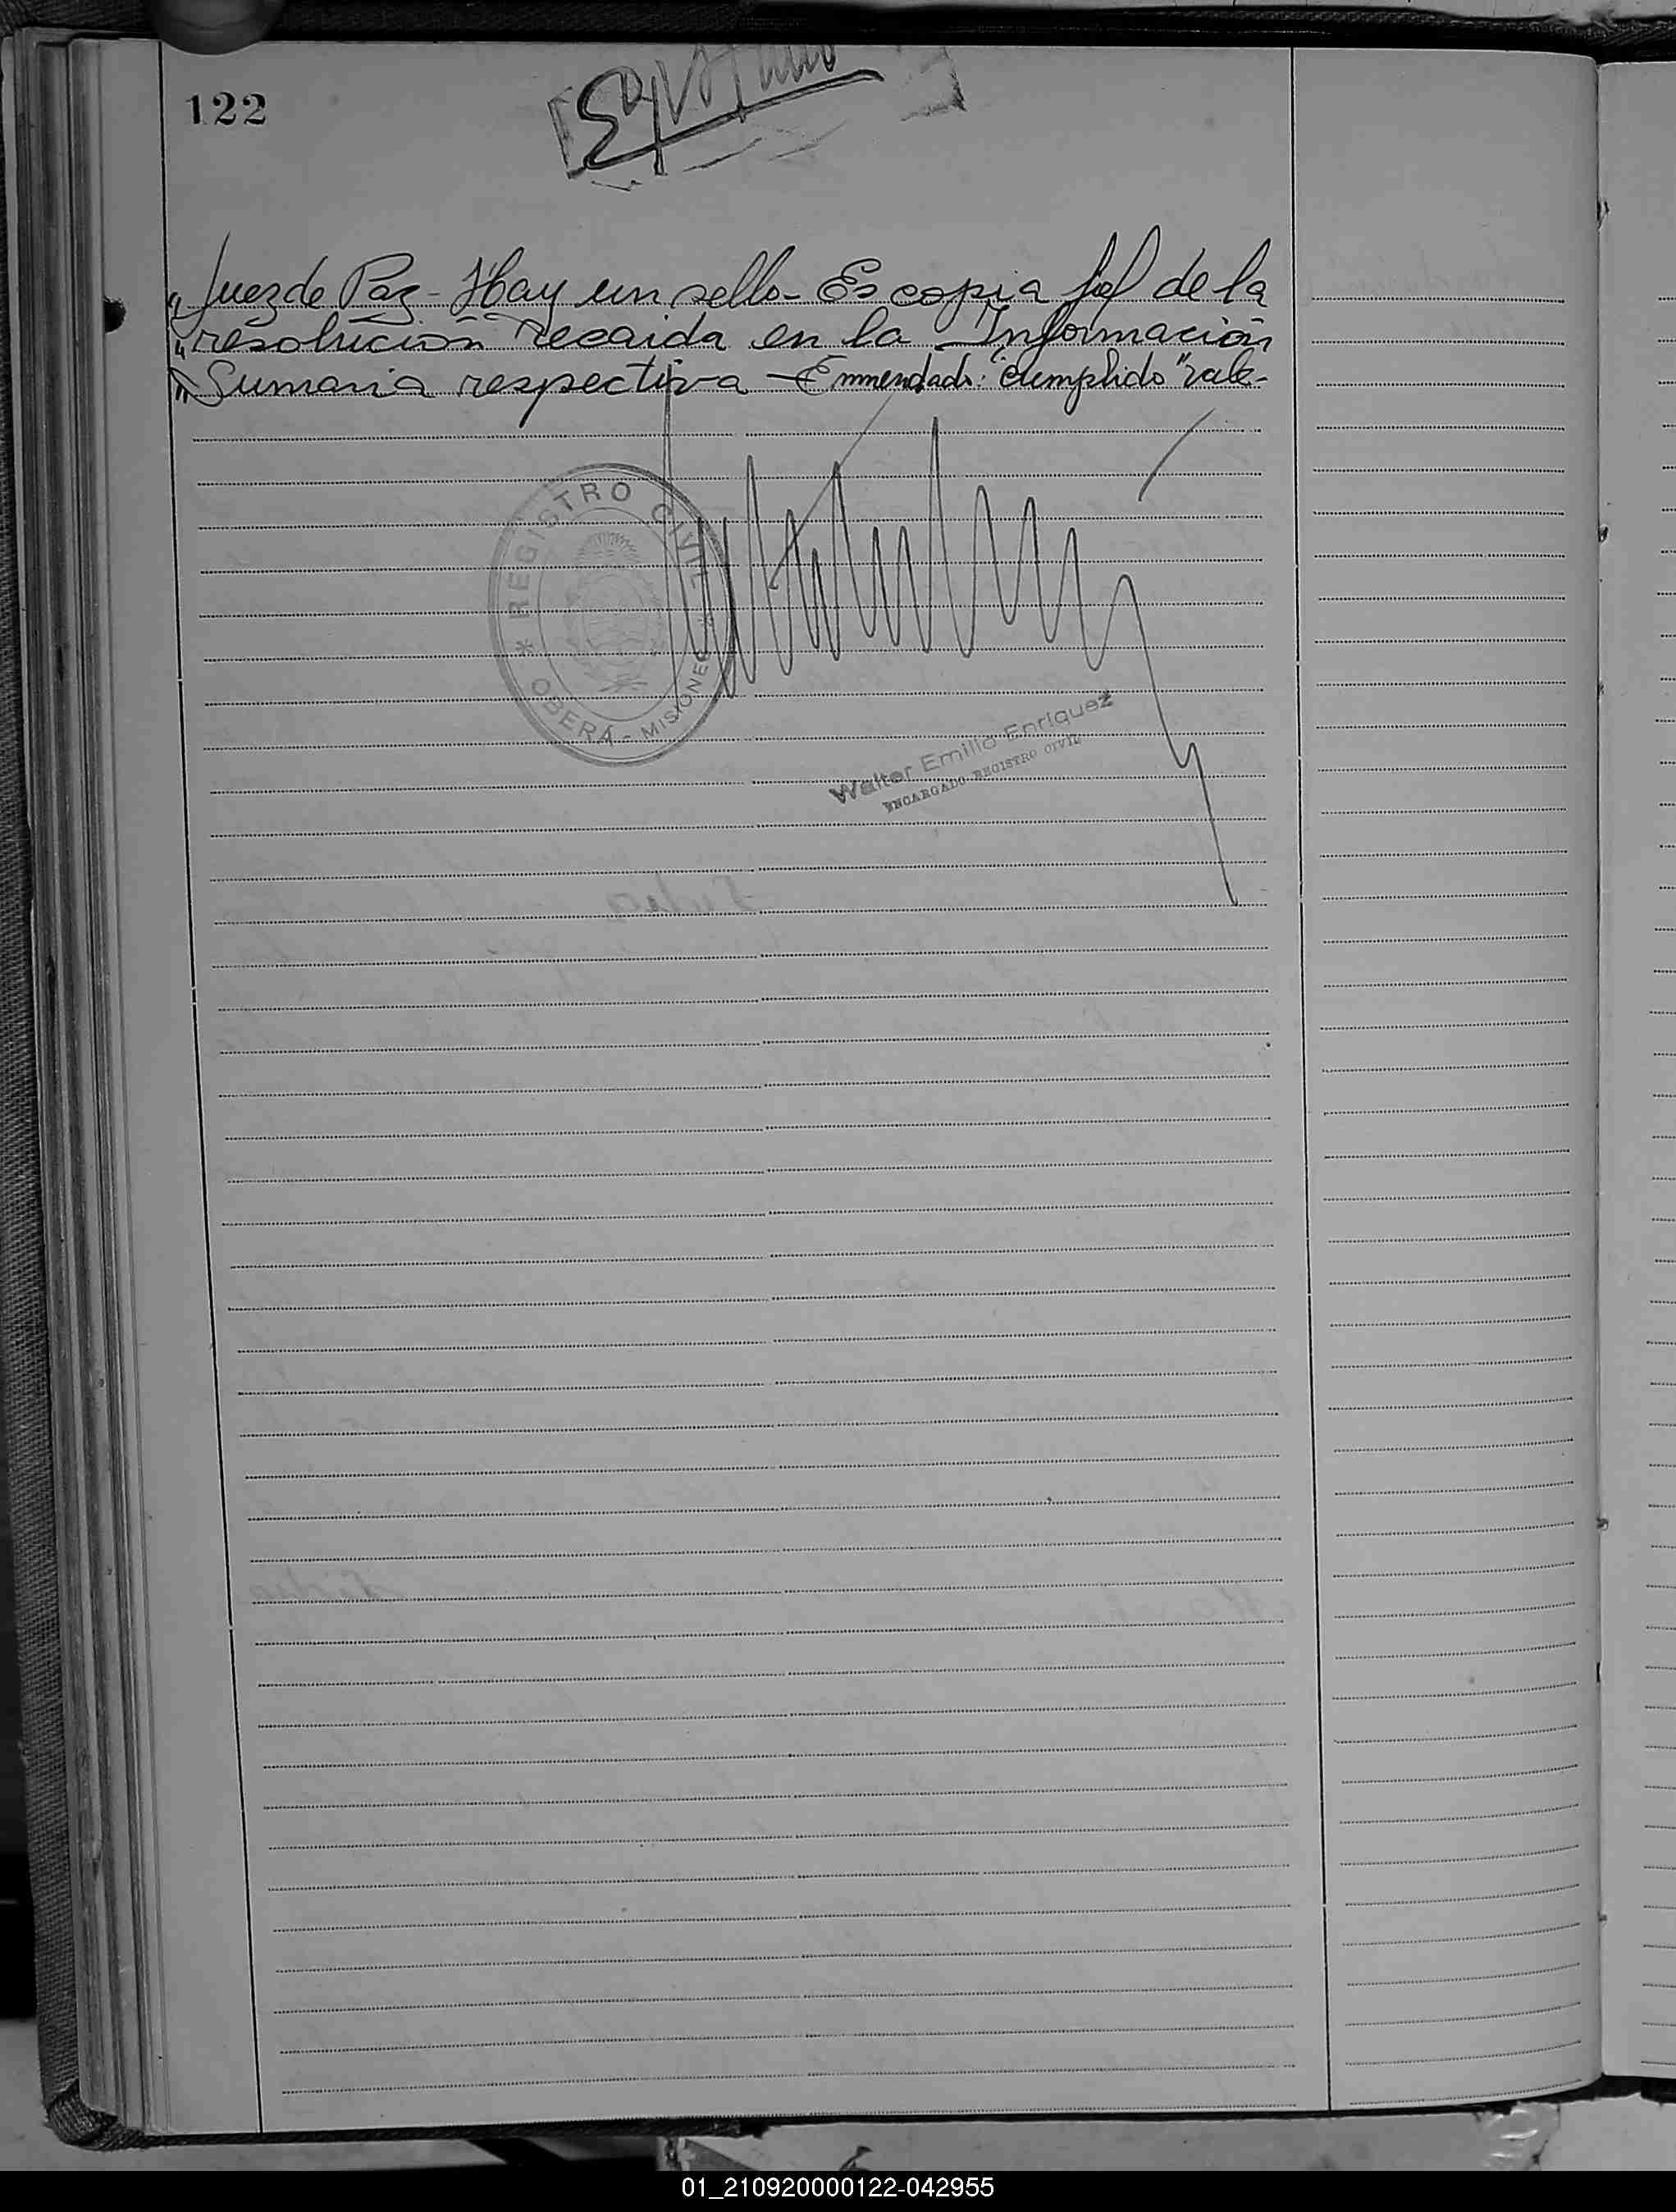 122
„Juez de Paz - Hay un sello - Es copia fiel de la
„resolución recaida en la Información
„Sumaria respectiva - Emmendado: "cumplido" vale-
* REGISTRO CIVIL *
OBERÁ - MISIONES
Walter Emilio Enriquez
ENCARGADO REGISTRO CIVIL
01_210920000122-042955